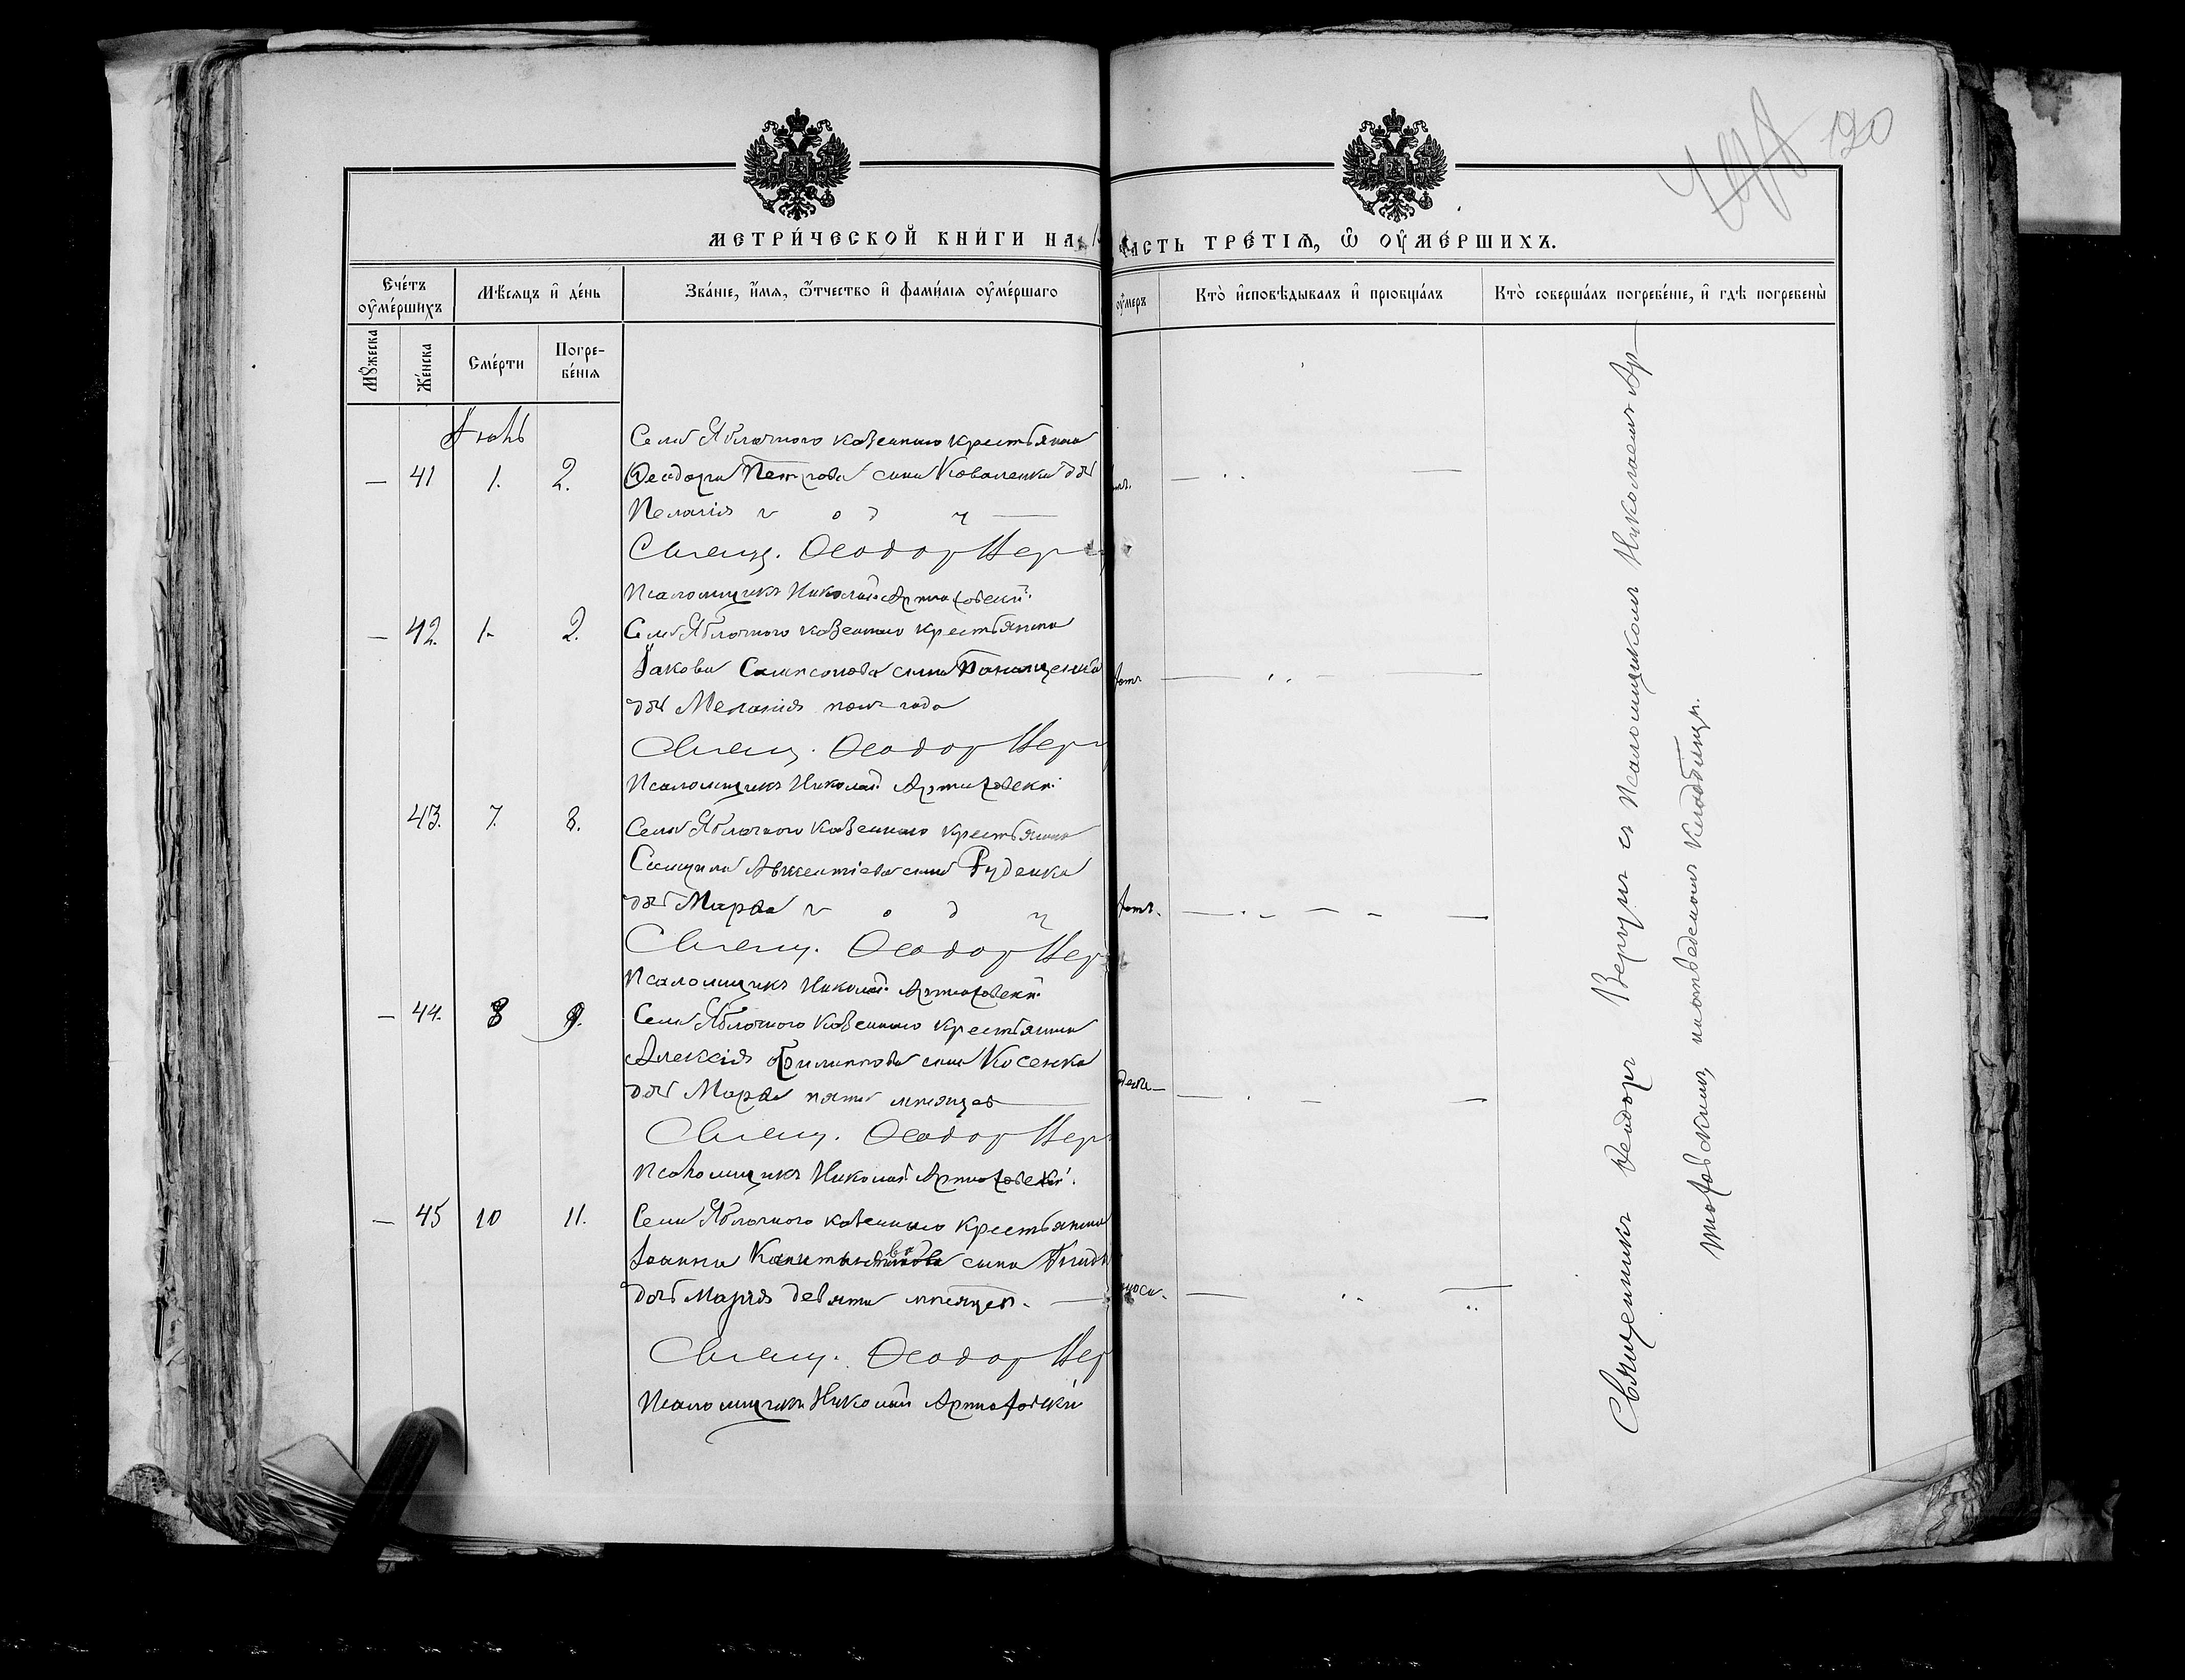 120
МЕТРИ́ЧЕСКОЙ КНИ́ГИ НА
ЧАСТЬ ТРЕ́ТІѦ, Ѿ ОУ҆МЕ́РШИХЪ.
Сче́тъ оу҆ме́ршихъ
Мѣ́сяцъ и҆ де́нь
Зва́ніе, и҆́мя, ѻ҆́тчество и҆ фами́лія оу҆ме́ршаго
оу҆́меръ
Кто̀ и҆сповѣ́дывалъ и҆ прїобща́лъ
Кто̀ соверша́лъ погребе́ніе, и҆ гдѣ̀ погребены̀
Мꙋ́жеска
Же́нска
Сме́рти
Погре-
бе́нія
Села Яблочного казенного крестьянина
— 41 1. 2. Ѳеодора Петрова сына Коваленка дочь
Пелагія г о д ч —
Свящ. Ѳеодор Вер
Псаломщикъ Николай Артюховскій.
— 42. 1. 2. Села Яблочного казенного крестьянина
Іакова Самсонова сына
дочь Меланія пол года
Свящ. Ѳеодор Вер
Псаломщикъ Николай Артюховскій
43. 7. 8. Села Яблочного казенного крестьянина
Самуила Авксентіева сына Руденка
дочь Марѳа г о д ч
Свящ. Ѳеодор Вер
Псаломщикъ Николай Артюховскій
— 44. 8 9. Села Яблочного казенного крестьянина
Алексія Филиппова сына Косенка
дочь Марѳа пяти мѣсяцев
Свящ. Ѳеодор Вер
Псаломщикъ Николай Артюховскій.
— 45 10 11. Села Яблочного казенного крестьянина
Іоанна сына
дочь Марія девяти мѣсяцев. —
носа.
Свящ. Ѳеодор Вер
Псаломщикъ Николай Артюховскій
Священникъ Ѳеодоръ съ Псаломщикомъ Николаемъ Ар-
тюховскимъ, на кладбищѣ.